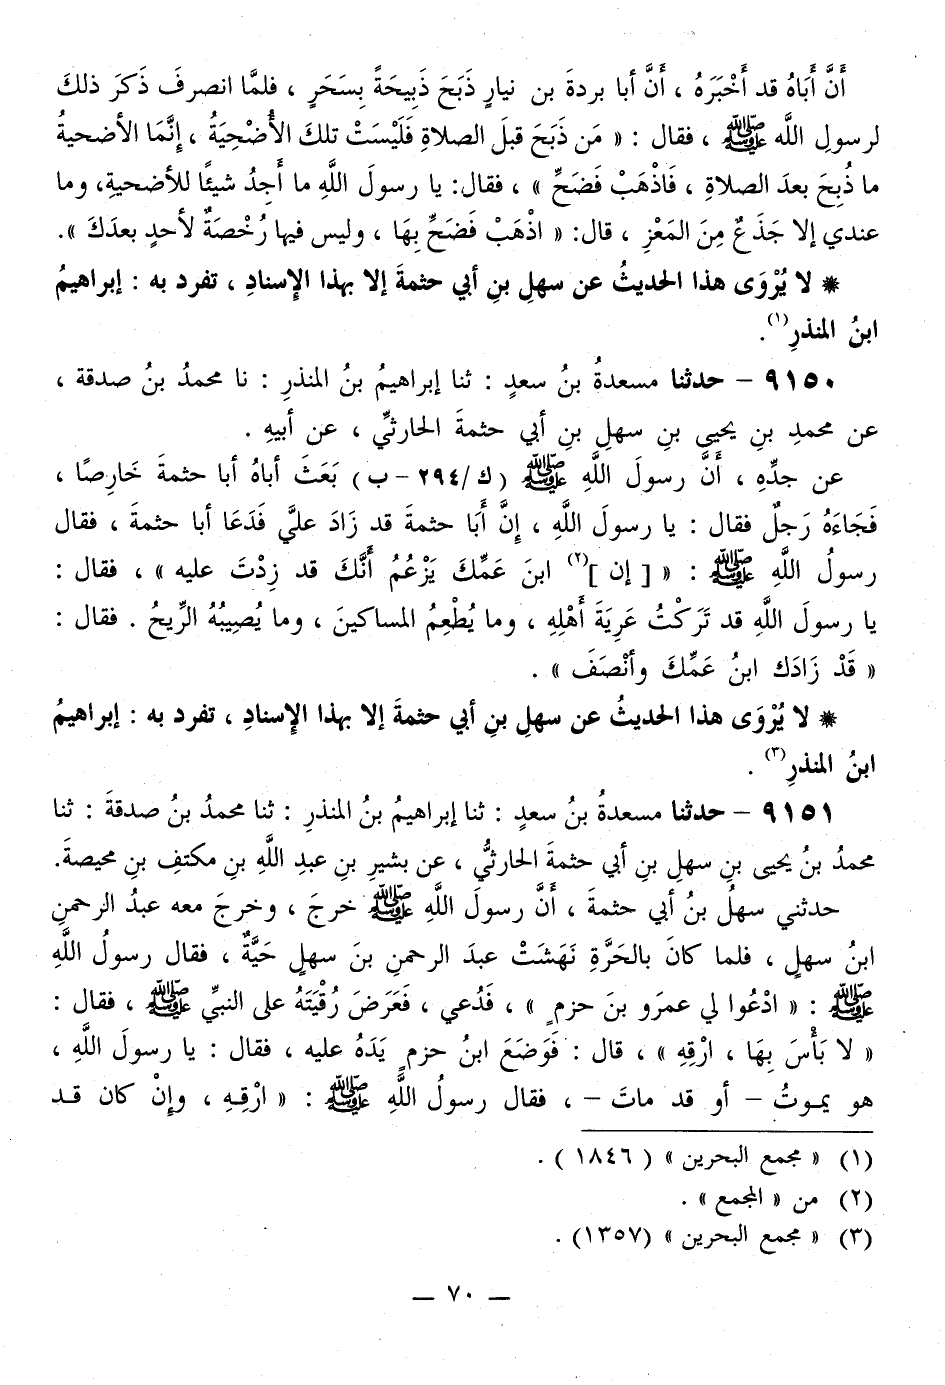 أَنَّ أَبَاهُ قد أَخْبَرَهُ ، أَنَّ أبا بردةَ بن نيارٍ ذَبَحَ ذَبِيحَةً بِسَحَرٍ ، فلمَّا انصرفَ ذَكرَ ذلكَ
لرسولِ اللَّه ﷺ ، فقال : « مَن ذَبَحَ قبلَ الصلاةِ فَلَيْسَتْ تلكَ الأُضْحِيَةُ ، إِنَّمَا الأضحيةُ
ما ذُبِحَ بعدَ الصلاةِ ، فَاذْهَبْ فَضَحِّ » ، فقال: يا رسولَ اللَّهِ ما أَجِدُ شيئًا للأضحيةِ، وما
عندي إلا جَذَعٌ مِنَ المَعْزِ ، قال: « اذْهَبْ فَضَحِّ بِهَا ، وليس فيها رُخْصَةٌ لأحدٍ بعدَكَ ».
* لا يُرْوَى هذا الحديثُ عن سهلِ بنِ أبي حثمةَ إلا بهذا الإِسنادِ ، تفرد به : إبراهيمُ
ابنُ المنذرِ(١).
٩١٥٠ – حدثنا مسعدةُ بنُ سعدٍ : ثنا إبراهيمُ بنُ المنذرِ : نا محمدُ بنُ صدقة ،
عن محمدِ بنِ يحيى بنِ سهلِ بنِ أبي حثمةَ الحارثيِّ ، عن أبيهِ .
عن جدِّهِ ، أَنَّ رسولَ اللَّهِ ﷺ (ك/٢٩٤ – ب) بَعَثَ أباهُ أبا حثمةَ خَارِصًا ،
فَجَاءَهُ رَجلٌ فقال : يا رسولَ اللَّهِ ، إِنَّ أَبَا حثمةَ قد زَادَ عليَّ فَدَعَا أبا حثمةَ ، فقال
رسولُ اللَّهِ ﷺ : « [ إن ](٢) ابنَ عَمِّكَ يَزْعُمُ أَنَّكَ قد زِدْتَ عليه » ، فقال :
يا رسولَ اللَّهِ قد تَرَكْتُ عَرِيَةَ أَهْلِهِ ، وما يُطْعِمُ المساكينَ ، وما يُصِيبُهُ الرِّيحُ . فقال :
« قَدْ زَادَك ابنُ عَمِّكَ وأنْصَفَ » .
* لا يُرْوَى هذا الحديثُ عن سهلِ بنِ أبي حثمةَ إلا بهذا الإِسنادِ ، تفرد به : إبراهيمُ
ابنُ المنذرِ(٣) .
٩١٥١ – حدثنا مسعدةُ بنُ سعدٍ : ثنا إبراهيمُ بنُ المنذرِ : ثنا محمدُ بنُ صدقةَ : ثنا
محمدُ بنُ يحيى بنِ سهلِ بنِ أبي حثمةَ الحارثيُّ ، عن بشيرِ بنِ عبدِ اللَّهِ بنِ مكتفِ بنِ محيصةَ.
حدثني سهلُ بنُ أبي حثمةَ ، أَنَّ رسولَ اللَّهِ ﷺ خرجَ ، وخرجَ معه عبدُ الرحمنِ
ابنُ سهلٍ ، فلما كانَ بالحَرَّةِ نَهَشَتْ عبدَ الرحمنِ بنَ سهلٍ حَيَّةٌ ، فقال رسولُ اللَّهِ
ﷺ : « ادْعُوا لي عمرَو بنَ حزمٍ » ، فَدُعي ، فَعَرَضَ رُقْيَتَهُ على النبيِّ ﷺ ، فقال :
« لا بَأْسَ بِهَا ، ارْقِهِ » ، قال : فَوَضَعَ ابنُ حزمٍ يَدَهُ عليه ، فقال : يا رسولَ اللَّهِ ،
هو يموتُ – أو قد ماتَ – ، فقال رسولُ اللَّهِ ﷺ : « ارْقِهِ ، وإِنْ كان قد
(١) « مجمع البحرين » ( ١٨٤٦ ) .
(٢) من « المجمع » .
(٣) « مجمع البحرين » (١٣٥٧) .
— ٧٠ —